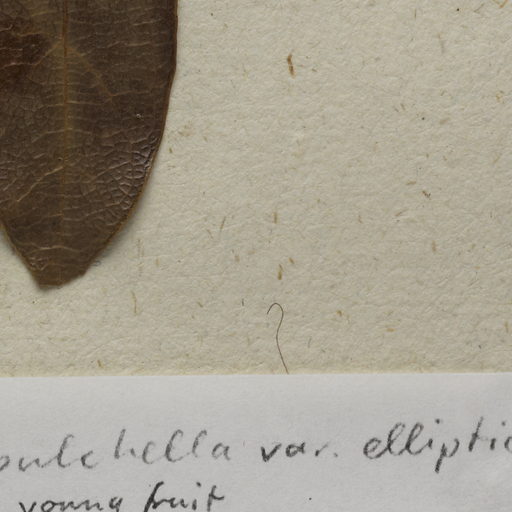 pulchella var. elliptic
young fruit